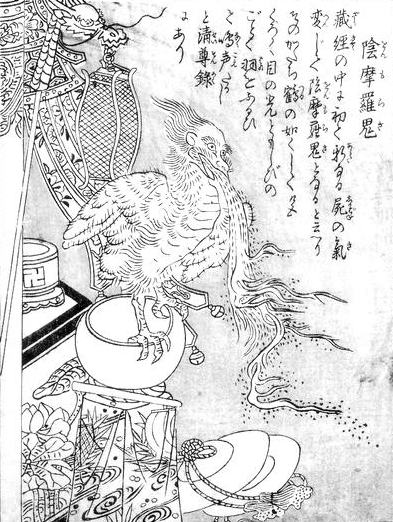 陰摩羅鬼
藏經の中に初て新なる屍の氣
変じて陰摩羅鬼となると云へり
そのかたち鶴の如くして色
くろく目の光ともしびの
ごとく羽をふるひ
て鳴声たかし
と清尊錄
にあり